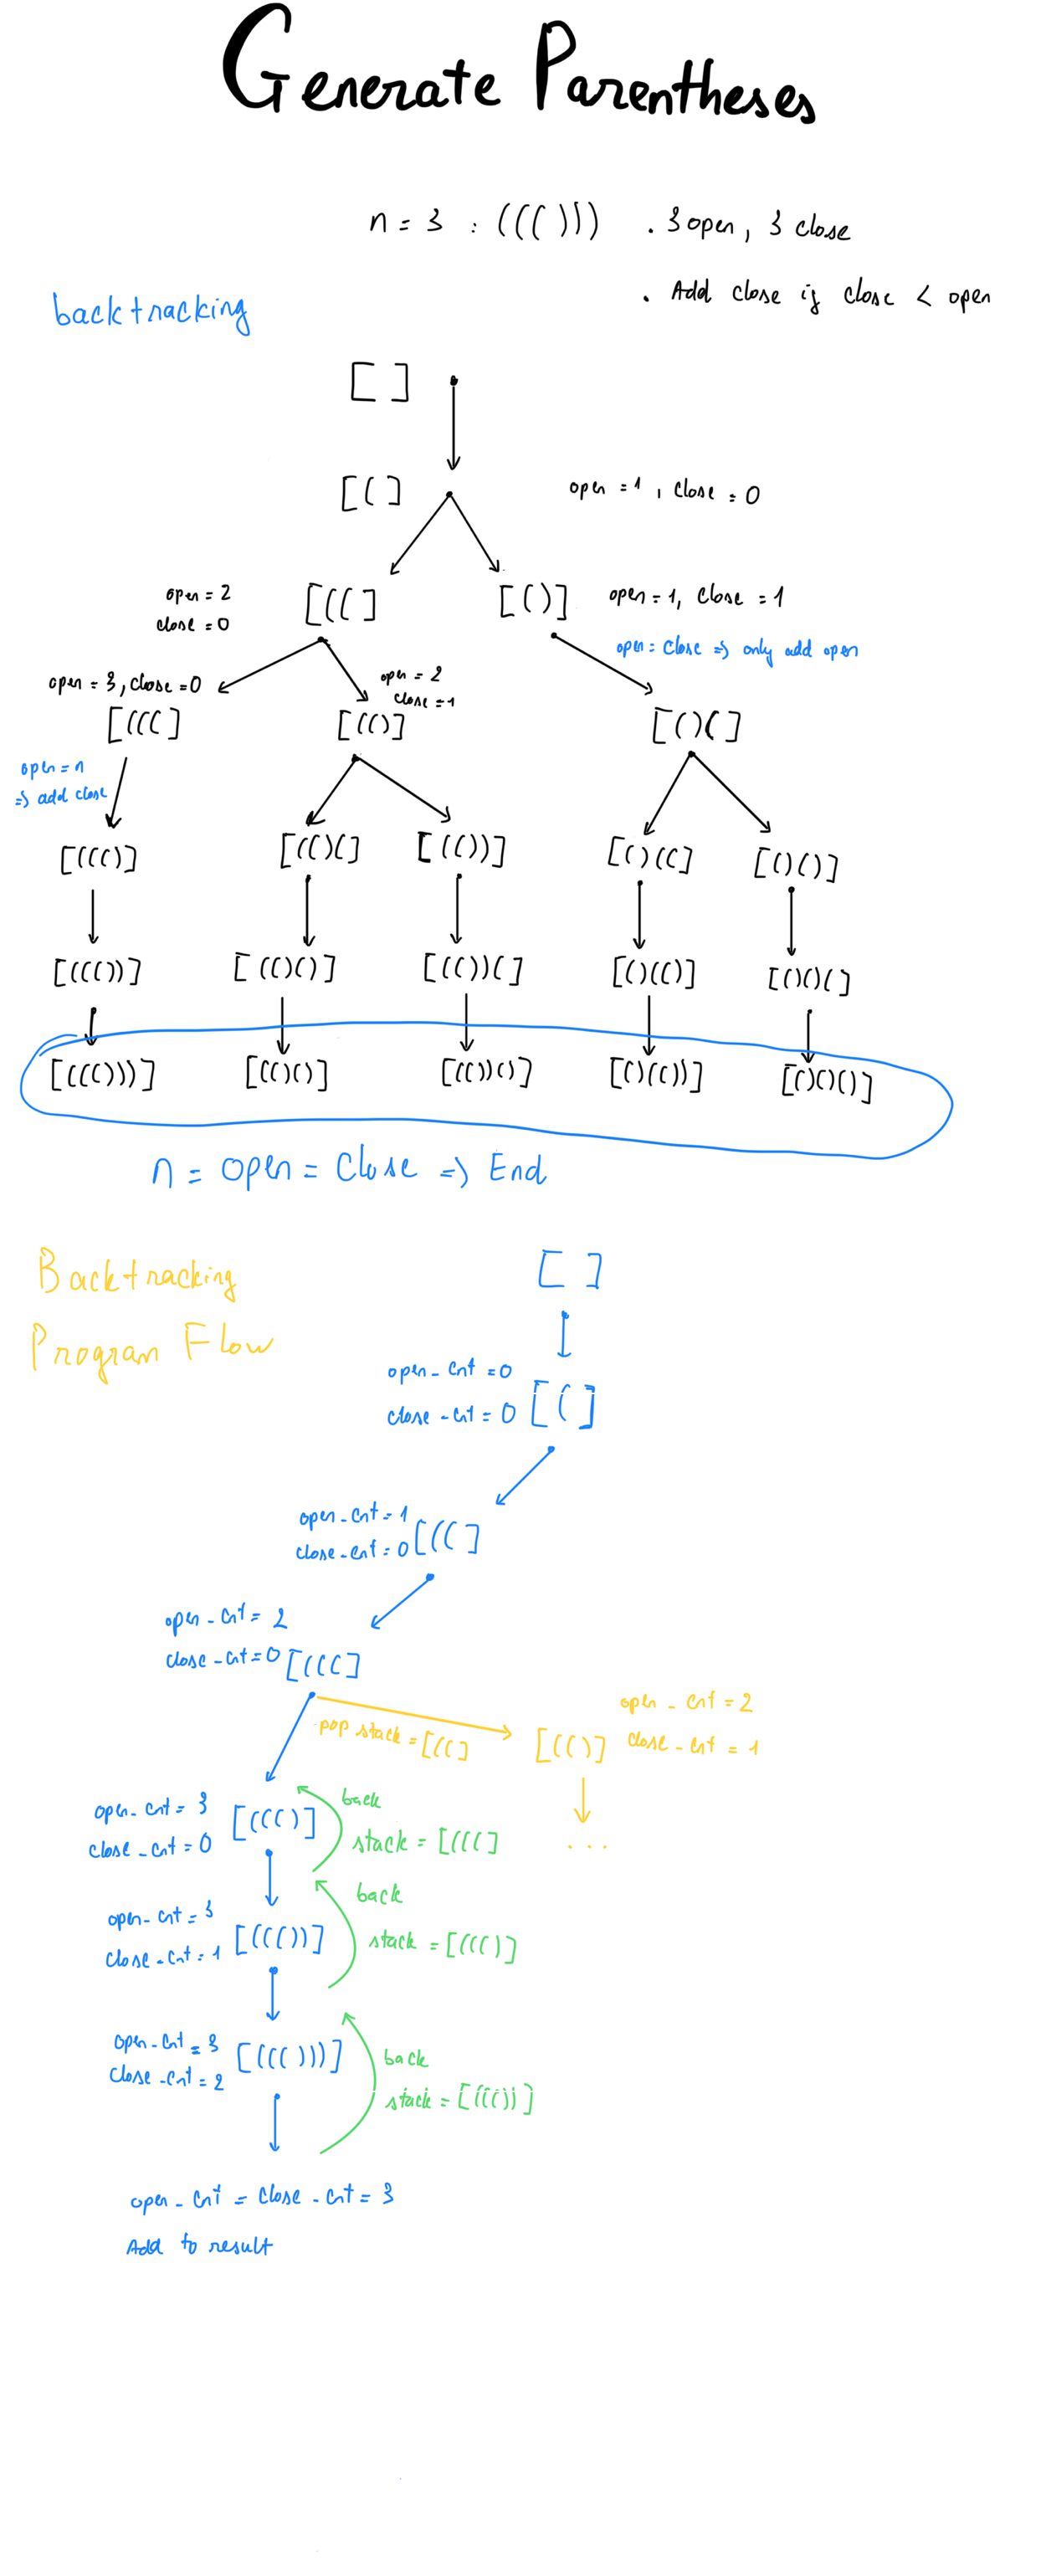 Generate Parentheses
n = 3 : ((())) . 3 open, 3 close
. Add close if close < open
backtracking
[ ]
[(] open = 1, close = 0
open = 2
close = 0
[((] [()] open = 1, close = 1
open = close => only add open
open = 3, close = 0
open = 2
close = 1
[(((] [(()] [()(]
open = n
=> add close
[((()] [(()(] [(())] [()((] [()()]
[((())] [(()()] [(())(] [()(()] [()()(]
[((()))] [(()()] [(())()] [()(())] [()()()]
n = open = close => End
Backtracking
Program Flow
[ ]
open_cnt = 0
close_cnt = 0 [(]
open_cnt = 1
close_cnt = 0 [((]
open_cnt = 2
close_cnt = 0 [(((]
pop stack = [((]
[(()] open_cnt = 2
close_cnt = 1
...
open_cnt = 3
close_cnt = 0 [((()]
back
stack = [(((]
open_cnt = 3
close_cnt = 1 [((())]
back
stack = [((()]
open_cnt = 3
close_cnt = 2 [((()))]
back
stack = [((())]
open_cnt = close_cnt = 3
Add to result